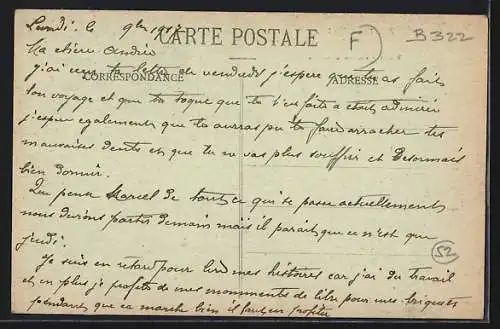 Lundi. le 9bre 191
CARTE POSTALE
F
B 322
Ma chere Andrée
j'ai reçu ta lettre de vendredi j'espere que tu as fait
CORRESPONDANCE
ADRESSE
bon voyage et que ta toque que tu t'es faite a etait admirée
j'espere egalement que tu auras pu te faire arracher tes
mauvaises dents et que tu ne vas plus souffrir et Desormais
bien dormir.
Que pense Marcel de tout ce qui se passe actuellement
nous devions partir demain mais il parait que ce n'est que
jeudi.
52
Je suis en retard pour lire mes histoires car j'ai du travail
et en plus je profite de mes monuments de libre pour mes briquets
pendant que ca marche bien il faut en profiter